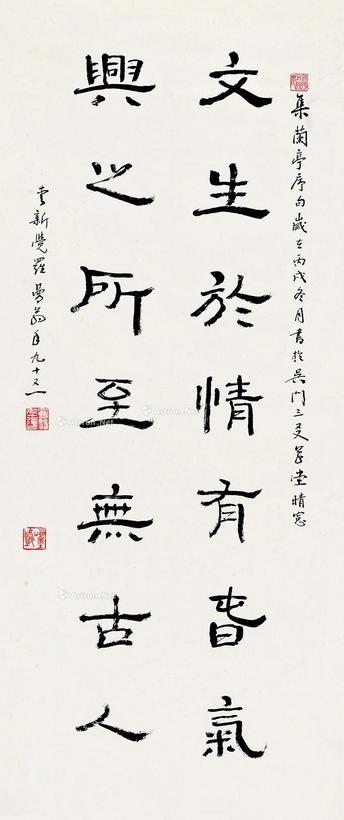 集蘭亭序句歲在丙戌冬月書於吳門三友草堂晴窓
文生於情有旾氣
興之所至無古人
愛新覺羅曼翁年九十又一
Artron.Net